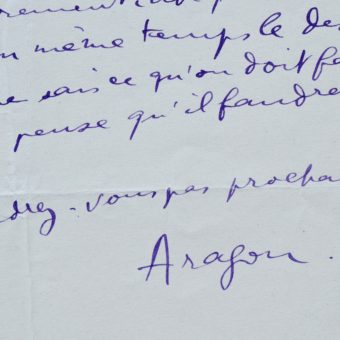 même temps le des
sais ce qu'on doit fa
pense qu'il faudre
drez-vous pas procha
Aragon.